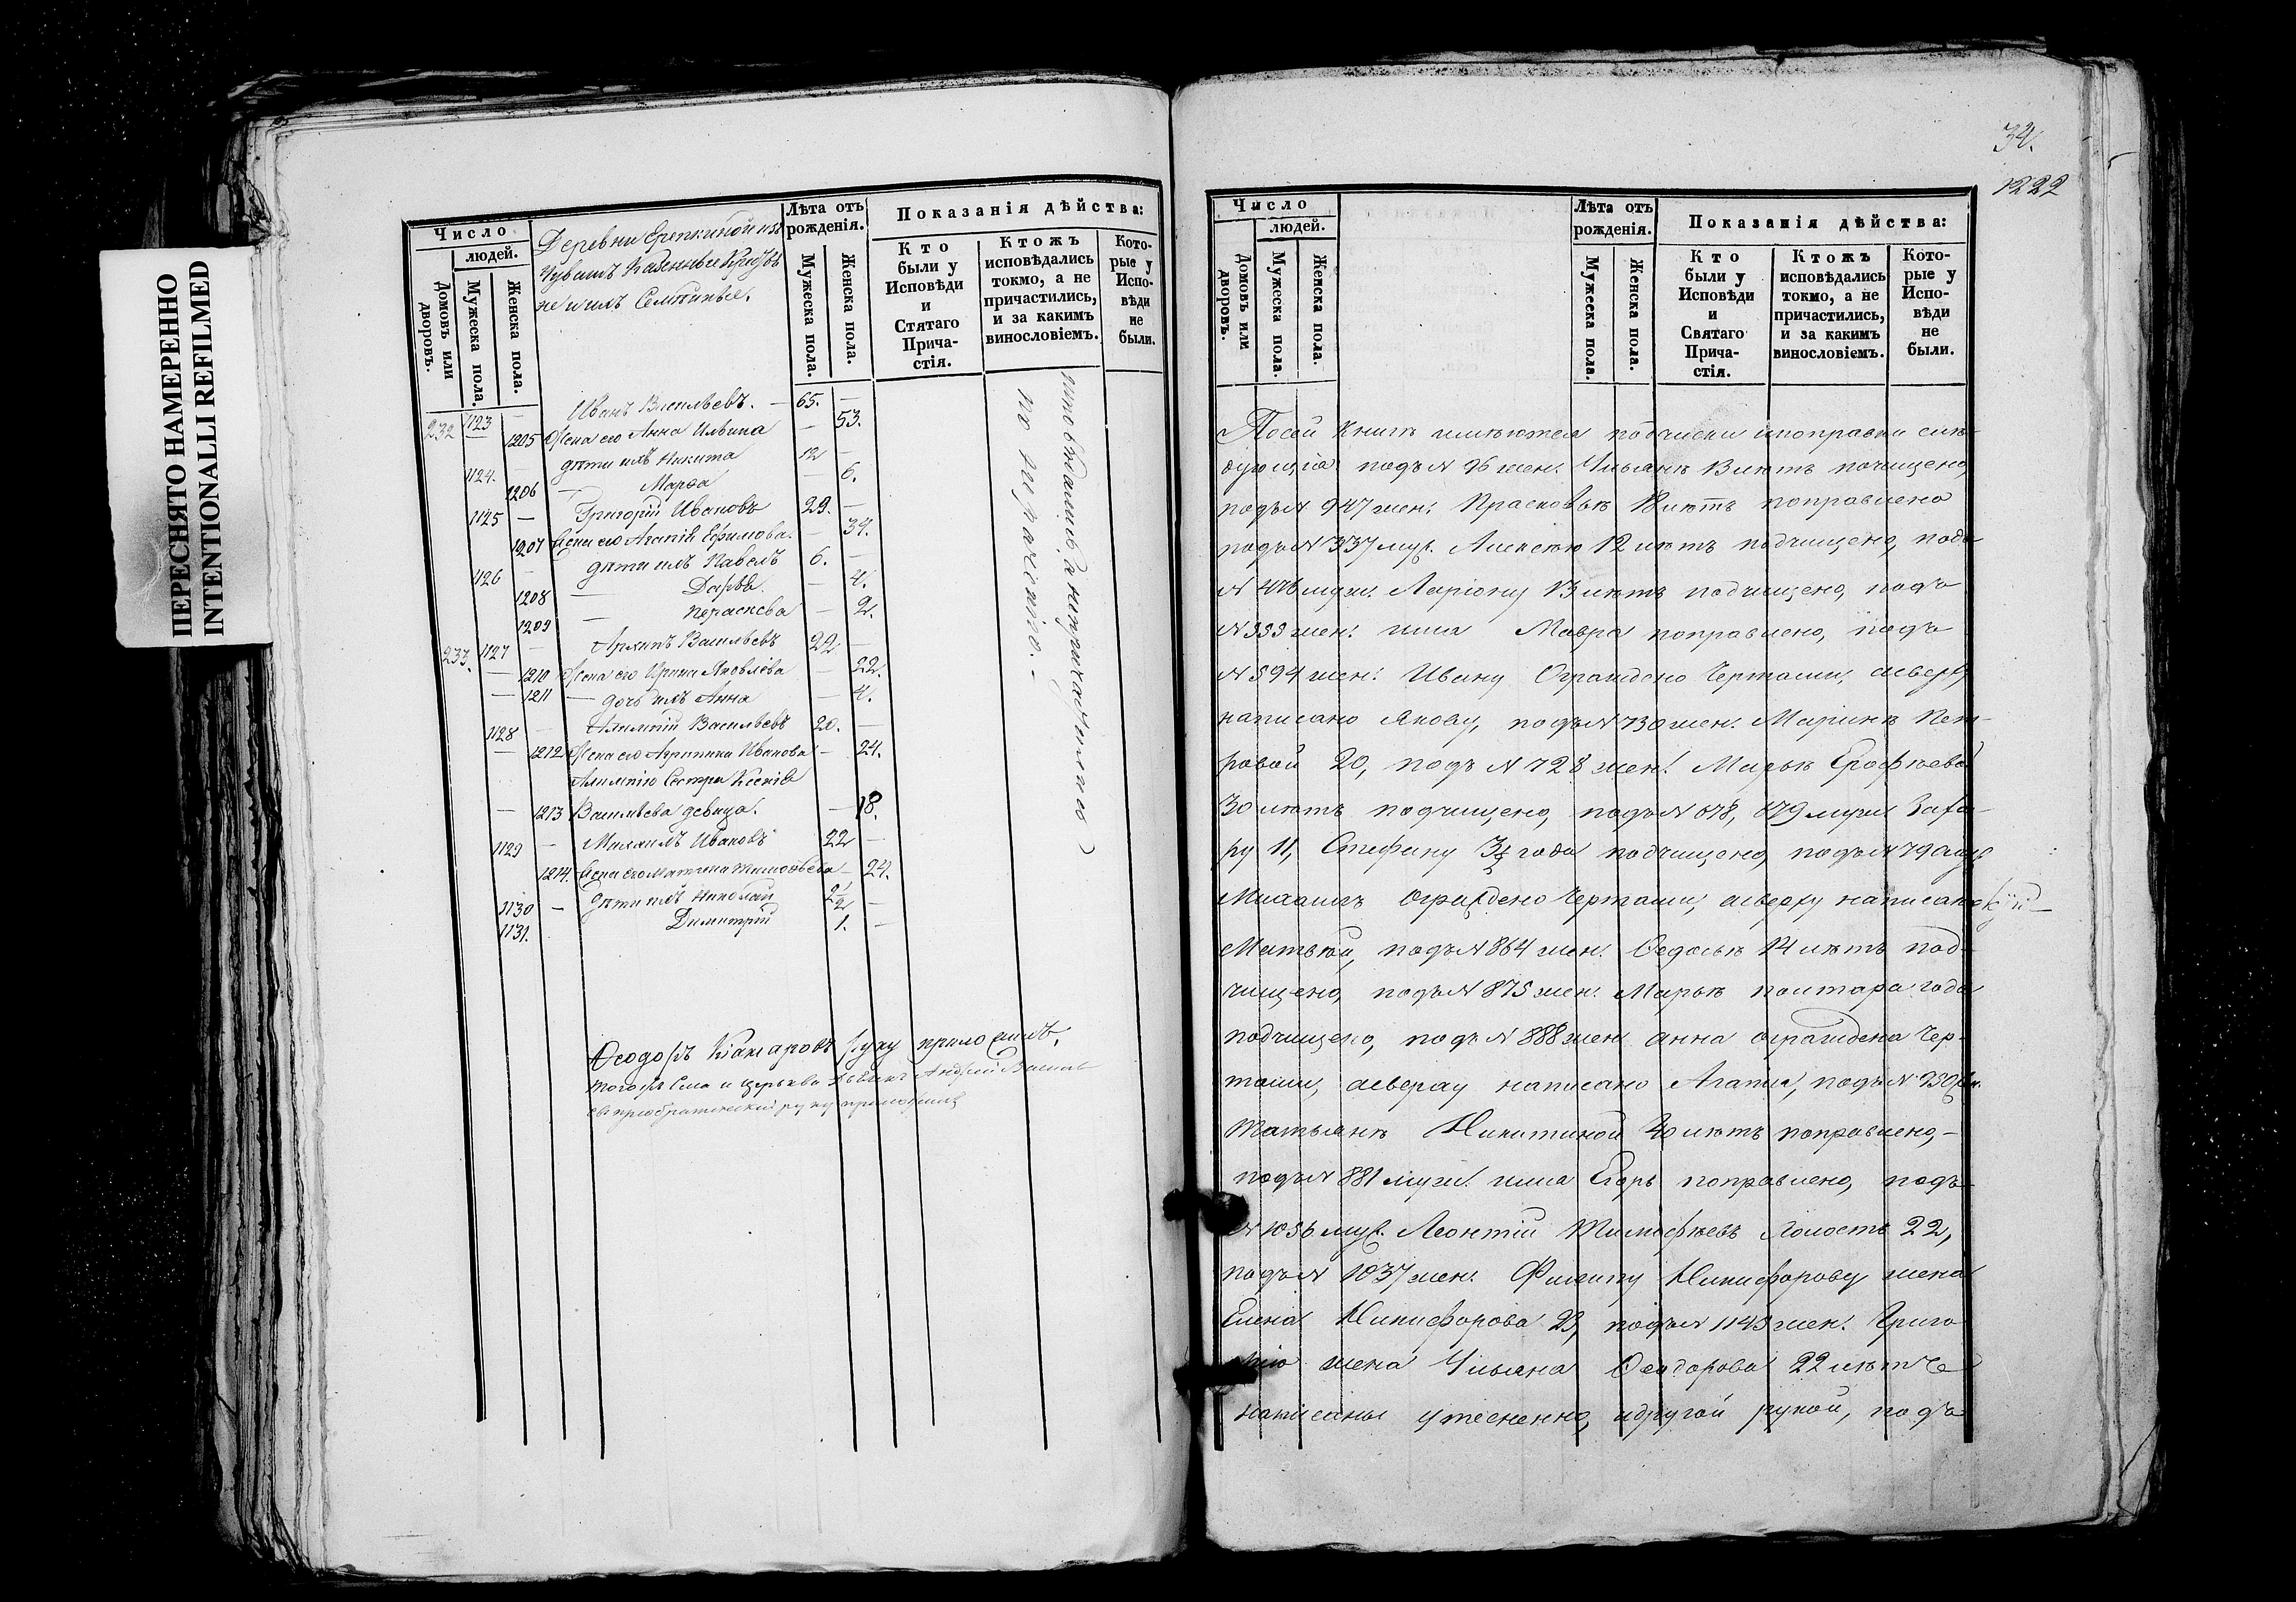 ПЕРЕСНЯТО НАМЕРЕННО
INTENTIONALLI REFILMED
Число
людей.
Домовъ или дворовъ.
Мужеска пола.
Женска пола.
Деревни Ерепкиной изъ
Чувашъ Казенные Крестья
не и ихъ Семейные.
Лѣта отъ
рожденія.
Мужеска пола.
Женска пола.
Показанія дѣйства:
Кто
были у
Исповѣди
и
Стятаго
Прича-
стія.
Ктожъ
исповѣдались
токмо, а не
причастились,
и за какимъ
винословіемъ.
Кото-
рые у
Испо-
вѣди
не
были.
232 1123 — Иванъ Васильевъ. — 65. —
1205 Жена его Анна Ильина — 53.
1124. — дѣти ихъ Никита 12 —
1206 — Марѳа — 6.
1125 — Григорій Ивановъ 29. —
1207 Жена его Агапія Ефимова. — 34.
1126 — дѣти ихъ Павелъ 6. —
1208 — Дарья. — 4.
1209 — Параскева — 2.
233. 1127 — Архипъ Васильевъ 22 —
— 1210 Жена его Ирина Яковлева — 22.
— 1211 — дочь ихъ Анна — 4.
1128 — Алимпій Васильевъ 20. —
— 1212 Жена его Агрипина Иванова — 24.
Алимпію Сестра Ксенія
— 1213 Васильева девица. — 18.
1129 — Михаилъ Ивановъ 22 —
1214. Жена его Матрена Тимофѣева — 24.
1130 — дѣти ихъ Николай 2½ —
1131. Димитрій 1. —
исповѣдались а непричастились
по
Ѳеодоръ Комаровъ руку приложилъ.
тогожъ Села и церкви Андрей
руку приложилъ
34.
1222
Число
людей.
Домовъ или дворовъ.
Мужеска пола.
Женска пола.
Лѣта отъ
рожденія.
Мужеска пола.
Женска пола.
Показанія дѣйства:
Кто
были у
Исповѣди
и
Святаго
Прича-
стія.
Ктожъ
исповѣдались
токмо, а не
причастились,
и за какимъ
винословіемъ.
Кото-
рые у
Испо-
вѣди
не
были.
Посей книгѣ имѣются подчиски ипоправки слѣ-
дующія подъ № 96 жен. Ульянѣ 13 лѣтъ почищено,
подъ № 947 жен. Прасковьѣ 18 лѣтъ поправлено
подъ № 337 муж. Алексѣю 12 лѣтъ подчищено, подъ
№ 476 муж. Ларіону 13 лѣтъ подчищено, подъ
№ 333 жен. имя Мавра поправлено, подъ
№ 594 жен. Ивану Ограждено чертами, асверху
написано Якову, подъ № 730 жен. Маринѣ Пет-
ровой 20, подъ № 728 жен. Марьѣ Ерофѣевой
30 лѣтъ подчищено, подъ № 678, 679 муж. Заха-
ру 11, Стефану 3¼ года подчищено, подъ № 790 муж
Михаилъ Ограждено чертами, асверху написано
Матвѣй, подъ № 864 жен. Ѳедосьѣ 14 лѣтъ под-
чищено, подъ № 875 жен. Марьѣ полтара года
подчищено, подъ № 888 жен анна ограждена чер-
тами, асверху написано Агапія, подъ № 950 жен.
Татьянѣ Никитиной 40 лѣтъ поправлено, —
подъ № 881 муж. имя Егоръ поправлено, подъ
№ 1036 муж. Леонтій Тимофѣевъ холостъ 22,
подъ № 1037 жен. Филипу Никифорову жена
Елена Никифорова 23, подъ № 1143 жен. Григо
рію жена Ульяна Ѳеодорова 22 лѣтъ
написаны утесненно, идругой рукой, подъ